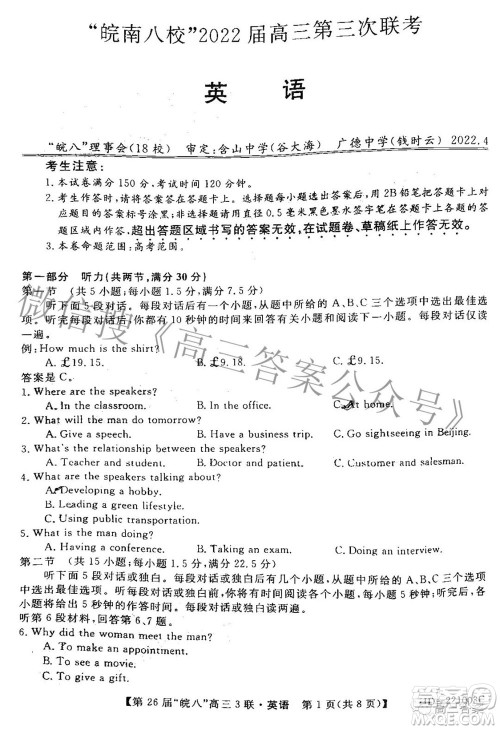 “皖南八校”2022届高三第三次联考
英 语
“皖八”理事会(18校) 审定:含山中学(谷大海) 广德中学(钱时云) 2022.4
考生注意:
1.本试卷满分150分,考试时间120分钟。
2.考生作答时,请将答案答在答题卡上。选择题每小题选出答案后,用2B铅笔把答题卡上对
应题目的答案标号涂黑;非选择题请用直径0.5毫米黑色墨水签字笔在答题卡上各题的答
题区域内作答,超出答题区域书写的答案无效,在试题卷、草稿纸上作答无效。
3.本卷命题范围:高考范围。
第一部分 听力(共两节,满分30分)
第一节 (共5小题;每小题1.5分,满分7.5分)
听下面5段对话。每段对话后有一个小题,从题中所给的A、B、C三个选项中选出最佳选
项。听完每段对话后,你都有10秒钟的时间来回答有关小题和阅读下一小题。每段对话仅读
一遍。
例:How much is the shirt?
A. £19.15. B. £9.18. C. £9.15.
答案是C。
1. Where are the speakers?
A. In the classroom. B. In the office. C. At home.
2. What will the man do tomorrow?
A. Give a speech. B. Have a business trip. C. Go sightseeing in Beijing.
3. What's the relationship between the speakers?
A. Teacher and student. B. Doctor and patient. C. Customer and salesman.
4. What are the speakers talking about?
A. Developing a hobby.
B. Leading a green lifestyle.
C. Using public transportation.
5. What is the man doing?
A. Having a conference. B. Taking an exam. C. Doing an interview.
第二节 (共15小题;每小题1.5分,满分22.5分)
听下面5段对话或独白。每段对话或独白后有几个小题,从题中所给的A、B、C三个选项
中选出最佳选项。听每段对话或独白前,你将有时间阅读各个小题,每小题5秒钟;听完后,各小
题将给出5秒钟的作答时间。每段对话或独白读两遍。
听第6段材料,回答第6、7题。
6. Why did the woman meet the man?
A. To have a meal.
B. To see a movie.
C. To pay a visit.
【第26届“皖八”高三3联·英语 第1页(共8页)】
微信搜《高三答案公众号》
高三答案